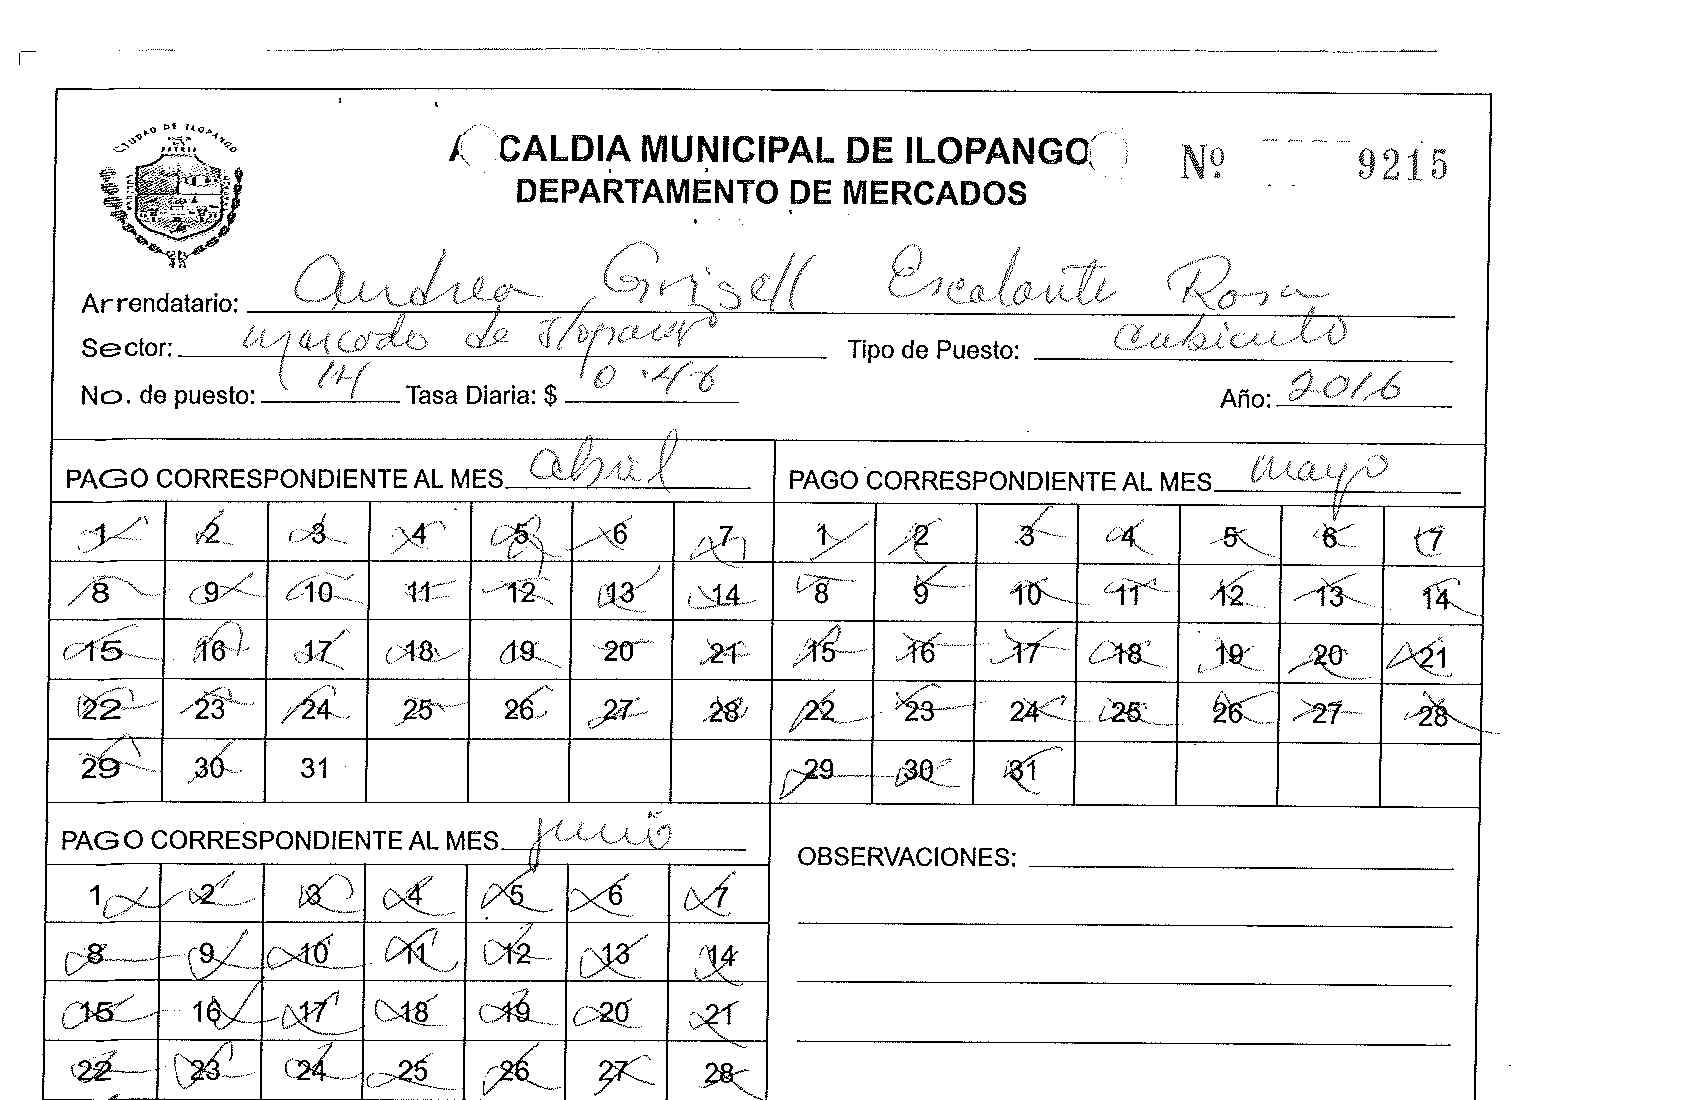 CIUDAD DE ILOPANGO
PATRIA
ALCALDIA MUNICIPAL DE ILOPANGO Nº 9215
DEPARTAMENTO DE MERCADOS
Arrendatario: Andrea Grisell Escalante Rosa
Sector: Mercado de Ilopango Tipo de Puesto: Cubiculo
No. de puesto: 14 Tasa Diaria: $ 0.46 Año: 2016
PAGO CORRESPONDIENTE AL MES abril
1 2 3 4 5 6 7
8 9 10 11 12 13 14
15 16 17 18 19 20 21
22 23 24 25 26 27 28
29 30 31
PAGO CORRESPONDIENTE AL MES mayo
1 2 3 4 5 6 7
8 9 10 11 12 13 14
15 16 17 18 19 20 21
22 23 24 25 26 27 28
29 30 31
PAGO CORRESPONDIENTE AL MES junio
1 2 3 4 5 6 7
8 9 10 11 12 13 14
15 16 17 18 19 20 21
22 23 24 25 26 27 28
OBSERVACIONES: